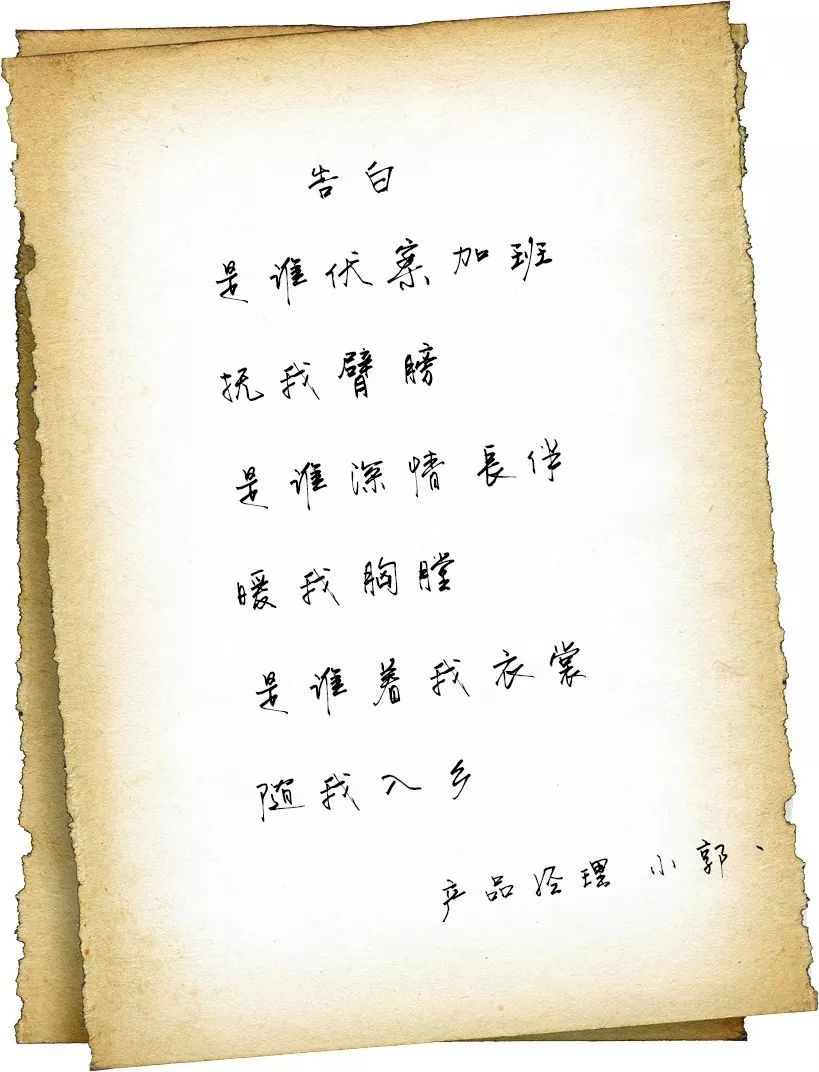 告白
是谁伏案加班
抚我臂膀
是谁深情長伴
暖我胸膛
是谁着我衣裳
随我入乡
产品经理 小郭、